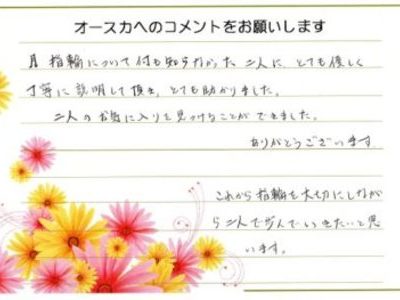 オースカへのコメントをお願いします
指輪について何も知らなかった二人に、とても優しく
丁寧に説明して頂き、とても助かりました。
二人のお気に入りを見つけることができました。
ありがとうございます
これから指輪を大切にしなが
ら二人で歩んでいきたいと思
います。